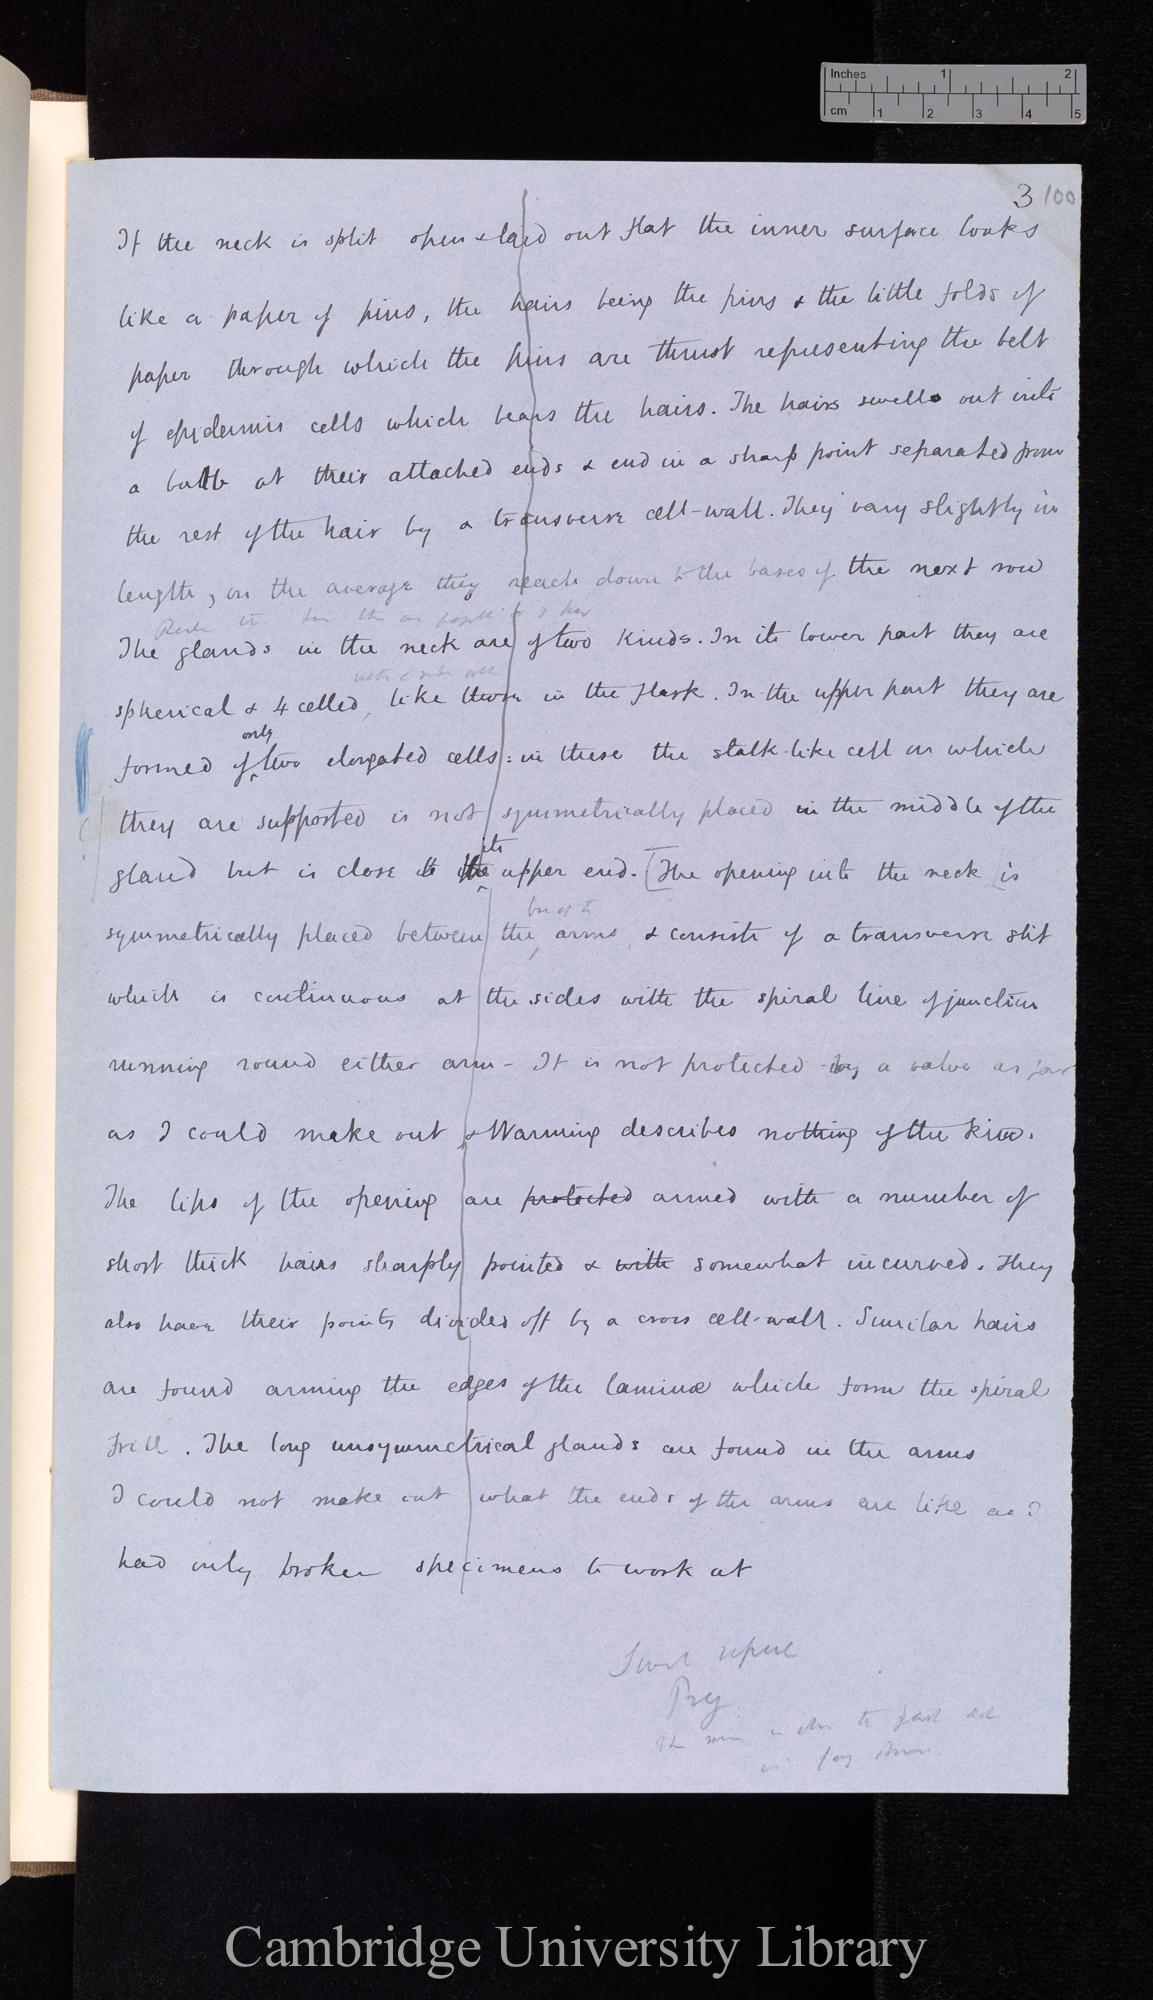 Inches 1 2
cm 1 2 3 4 5
3 100
If the neck is split open & laid out flat the inner surface looks
like a paper of pins, the hairs being the pins & the little folds of
paper through which the pins are thrust representing the belt
of epidermis cells which bears the hairs. The hairs swell out into
a bulb at their attached ends & end in a sharp point separated from
the rest of the hair by a transverse cell-wall. They vary slightly in
length, on the average they reach down to the bases of the next row
The glands in the neck are of two kinds. In its lower part they are
spherical & 4 celled, like those in the flask. In the upper part they are
only
formed of two elongated cells: in these the stalk-like cell on which
they are supported is not symmetrically placed in the middle of the
its
gland but is close to the upper end. [The opening into the neck is
symmetrically placed between the arms & consists of a transverse slit
which is continuous at the sides with the spiral line of junction
running round either arm - It is not protected by a valve as far
as I could make out & Warming describes nothing of the kind.
The lips of the opening are protected armed with a number of
short thick hairs sharply pointed & with somewhat incurved. They
also have their points divided off by a cross cell-wall. Similar hairs
are found arming the edges of the laminæ which form the spiral
frill. The long unsymmetrical glands are found in the arms
I could not make out what the ends of the arms are like as I
had only broken specimens to work at
Prey
Cambridge University Library